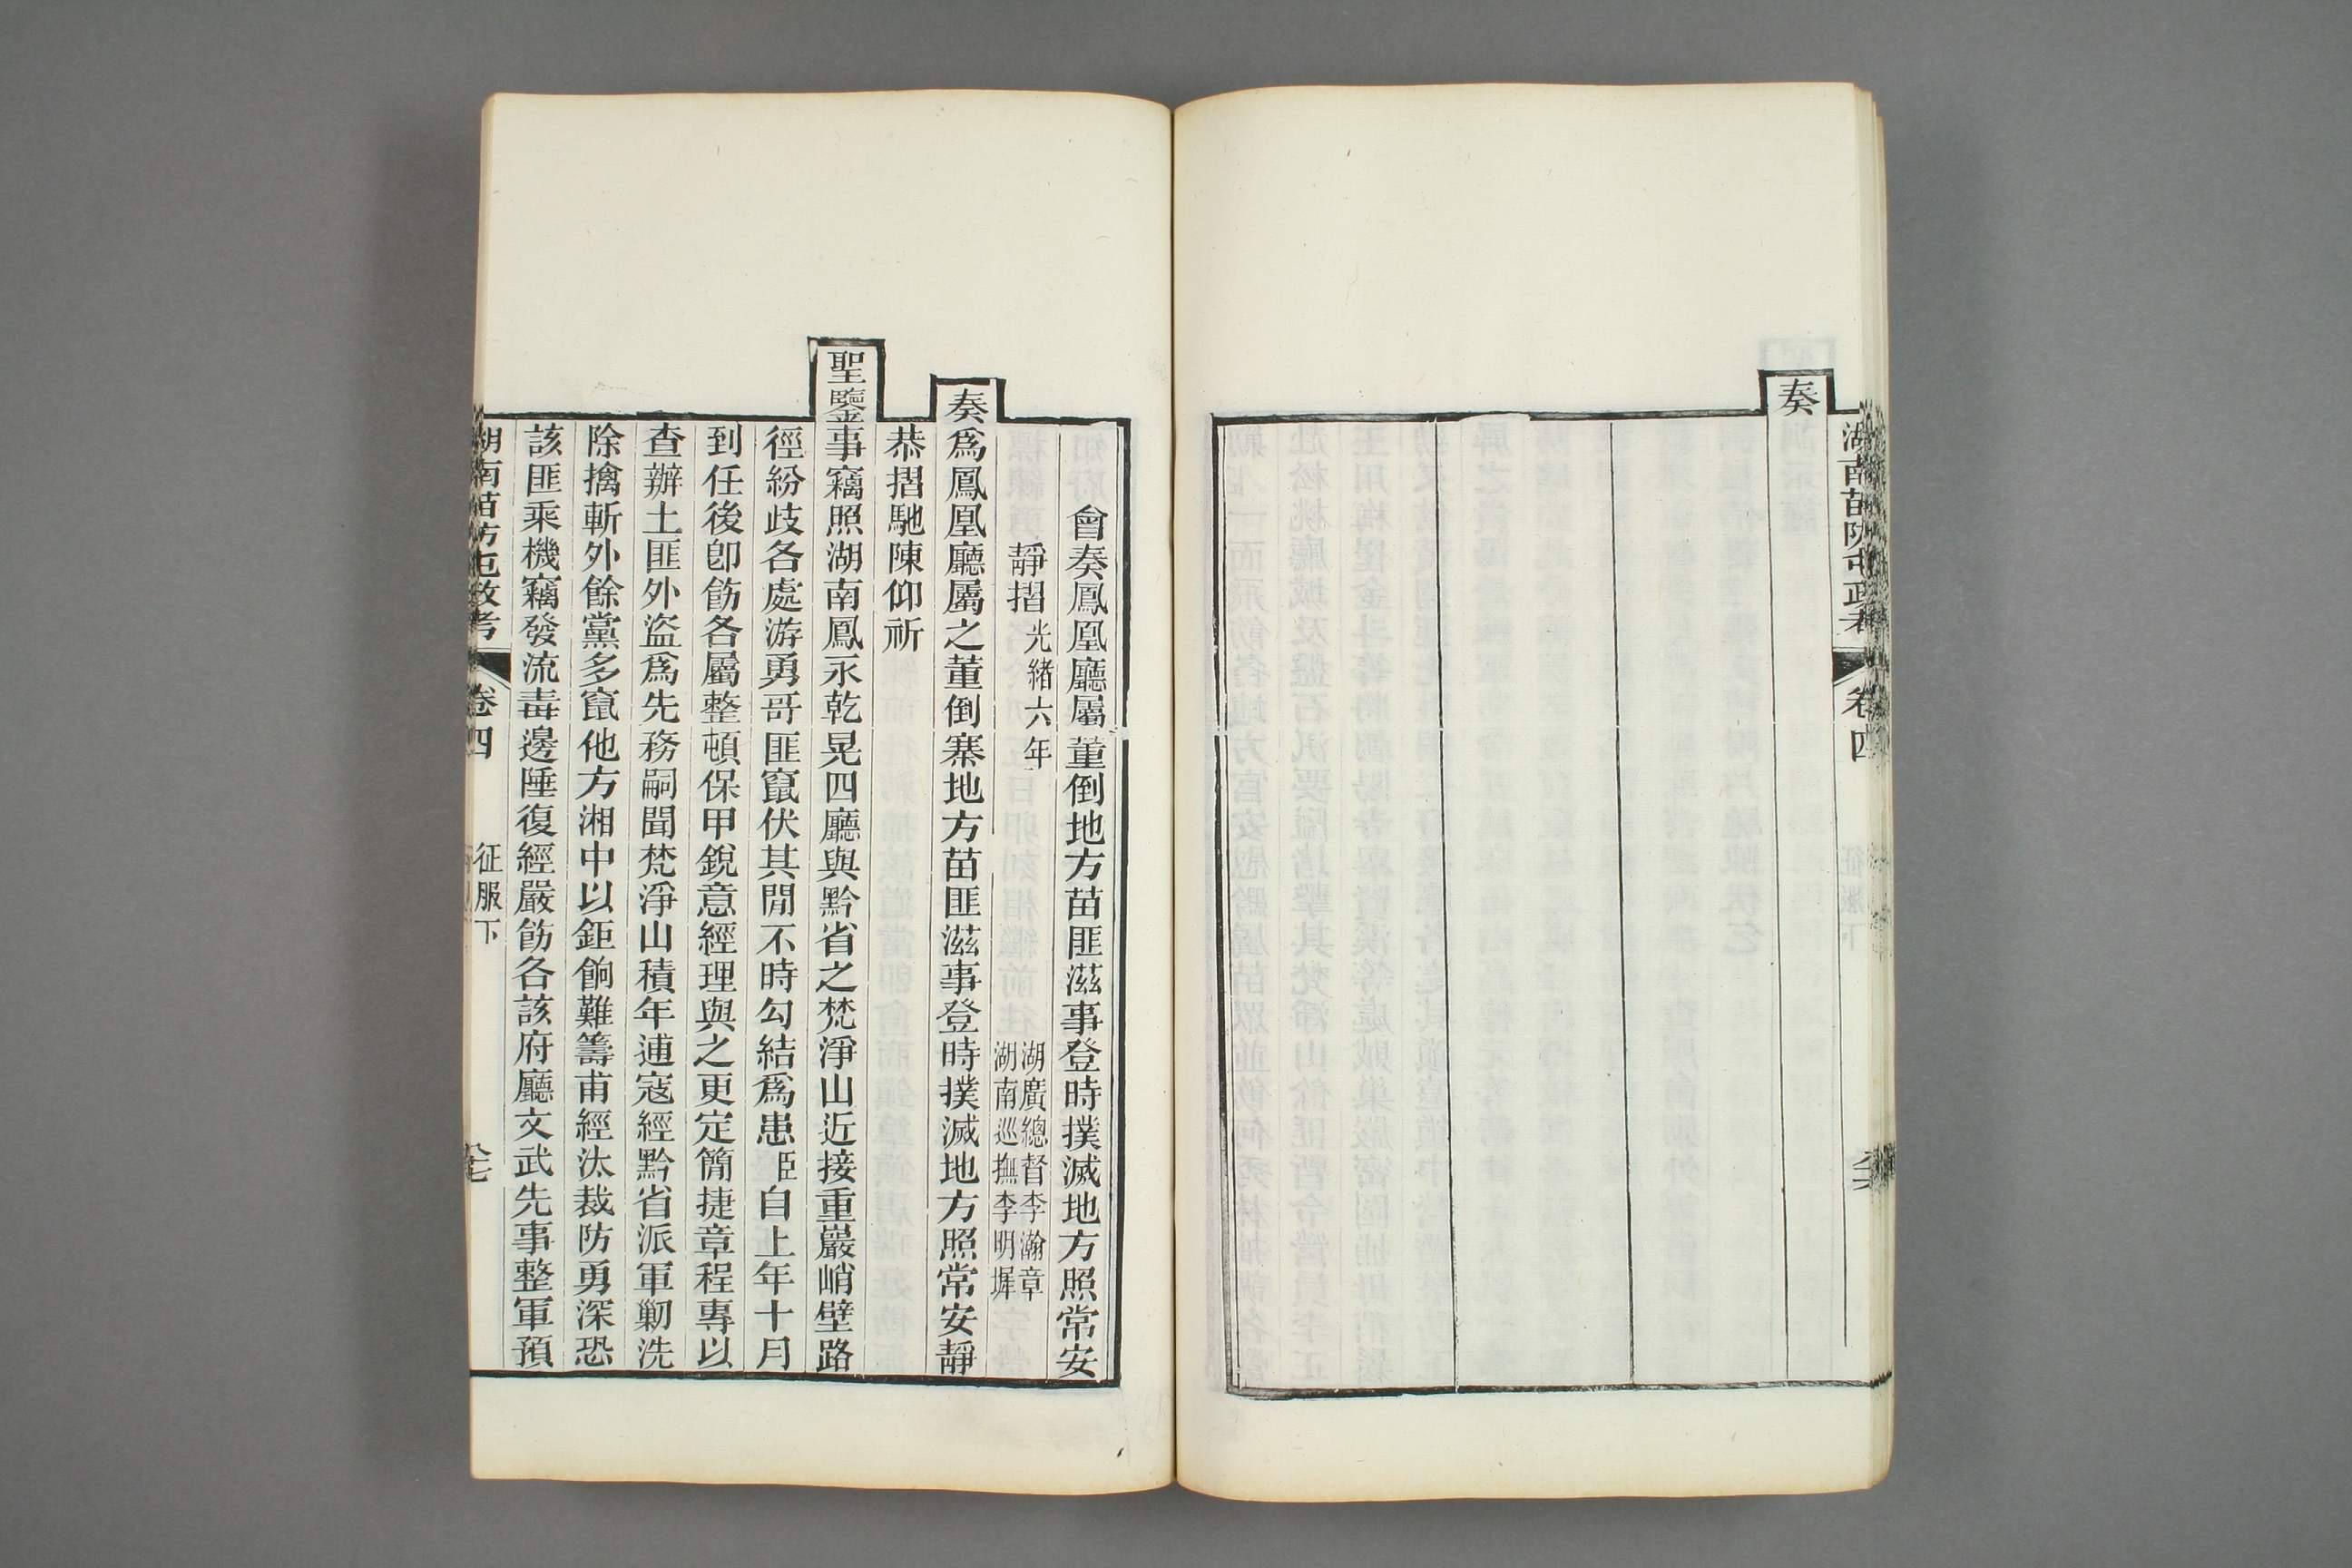 湖南苗防屯政考 卷四
奏
會奏鳳凰廳屬董倒地方苗匪滋事登時撲滅地方照常安
靜摺 光緒六年 湖廣總督李瀚章 湖南巡撫李明墀
奏爲鳳凰廳屬之董倒寨地方苗匪滋事登時撲滅地方照常安靜
恭摺馳陳仰祈
聖鑒事竊照湖南鳳永乾晃四廳與黔省之梵淨山近接重巖峭壁路
徑紛歧各處游勇哥匪竄伏其閒不時勾結爲患臣自上年十月
到任後卽飭各屬整頓保甲銳意經理與之更定簡捷章程專以
查辦土匪外盜爲先務嗣聞梵淨山積年逋寇經黔省派軍勦洗
除擒斬外餘黨多竄他方湘中以鉅餉難籌甫經汰裁防勇深恐
該匪乘機竊發流毒邊陲復經嚴飭各該府廳文武先事整軍預
湖南苗防屯政考 卷四 征服下